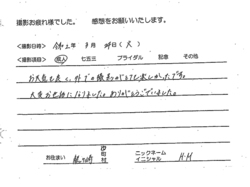 撮影お疲れ様でした。 感想をお願いいたします。
<撮影日時> 令和2年 3月 24日(火)
<撮影項目> 成人 七五三 ブライダル 記念 その他
お天気も良く、外での撮影がとても楽しかったです。
大変お世話になりました。ありがとうございました。
お住まい 市町村 ニックネーム イニシャル H.M